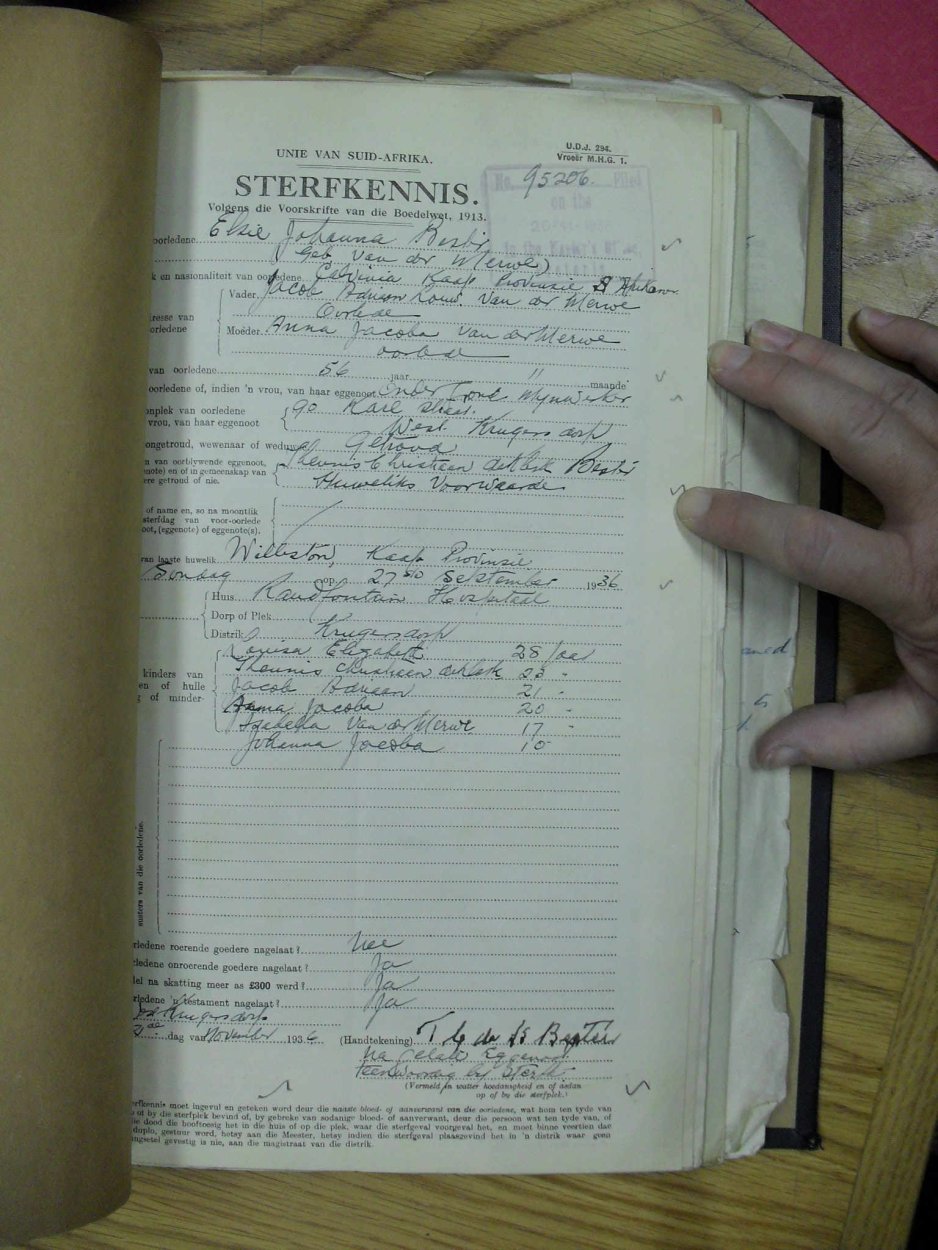 UNIE VAN SUID-AFRIKA.
U.D.J. 294.
Vroeër M.H.G. 1.
STERFKENNIS.
Volgens die Voorskrifte van die Boedelwet, 1913.
No. 95206. Filed
on the
orledene Elsie Johanna Bester
(geb van der Merwe)
k en nasionaliteit van oorledene Calvinia Kaap Provinsie S
Vader Jacob Adriaan Louw van der Merwe
Oorlede
dresse van
orledene
Moeder Anna Jacoba van der Merwe
oorlede
van oorledene 56 jaar " maande
oorledene of, indien 'n vrou, van haar eggenoot Mynwerker
onplek van oorledene
vrou, van haar eggenoot
90 Karl Straat.
West. Krugersdorp
ongetroud, wewenaar of weduwee Getroud
n van oorblywende eggenoot,
note) en of in gemeenskap van
ere getroud of nie.
Theunis Christiaan de Klerk Bester
Huweliks Voorwaarde
of name en, so na moontlik
sterfdag van voor-oorlede
oot, (eggenote) of eggenote(s).
van laaste huwelik Williston, Kaap Provinsie
Sondag op 27ste September 1936
Huis Randfontein Hospitaal
Dorp of Plek
Distrik Krugersdorp
kinders van
en of hulle
g of minder-
Louisa Elizabeth 28 jaar
Theunis Christiaan de Klerk 23 "
Jacob Adriaan 21 "
Anna Jacoba 20 "
Isabella van der Merwe 17 "
Johanna Jacoba 15
susters van die oorledene.
rledene roerende goedere nagelaat? Nee
ledene onroerende goedere nagelaat? Ja
el na skatting meer as £300 werd? Ja
rledene 'n testament nagelaat? Ja
Krugersdorp
de dag van November 1936
(Handtekening) T C de K Bester
Na gelate Eggenoot
teenwoordig by Sterf
(Vermeld in watter hoedanigheid en of aldan
op of by die sterfplek.)
erfkennis moet ingevul en geteken word deur die naaste bloed- of aanverwant van die oorledene, wat hom ten tyde van
of by die sterfplek bevind of, by gebreke van sodanige bloed- of aanverwant, deur die persoon wat ten tyde van, of
e dood die hooftoesig het in die huis of op die plek, waar die sterfgeval voorgeval het, en moet binne veertien dae
duplo, gestuur word, hetsy aan die Meester, hetsy indien die sterfgeval plaasgevind het in 'n distrik waar geen
ngsetel gevestig is nie, aan die magistraat van die distrik.